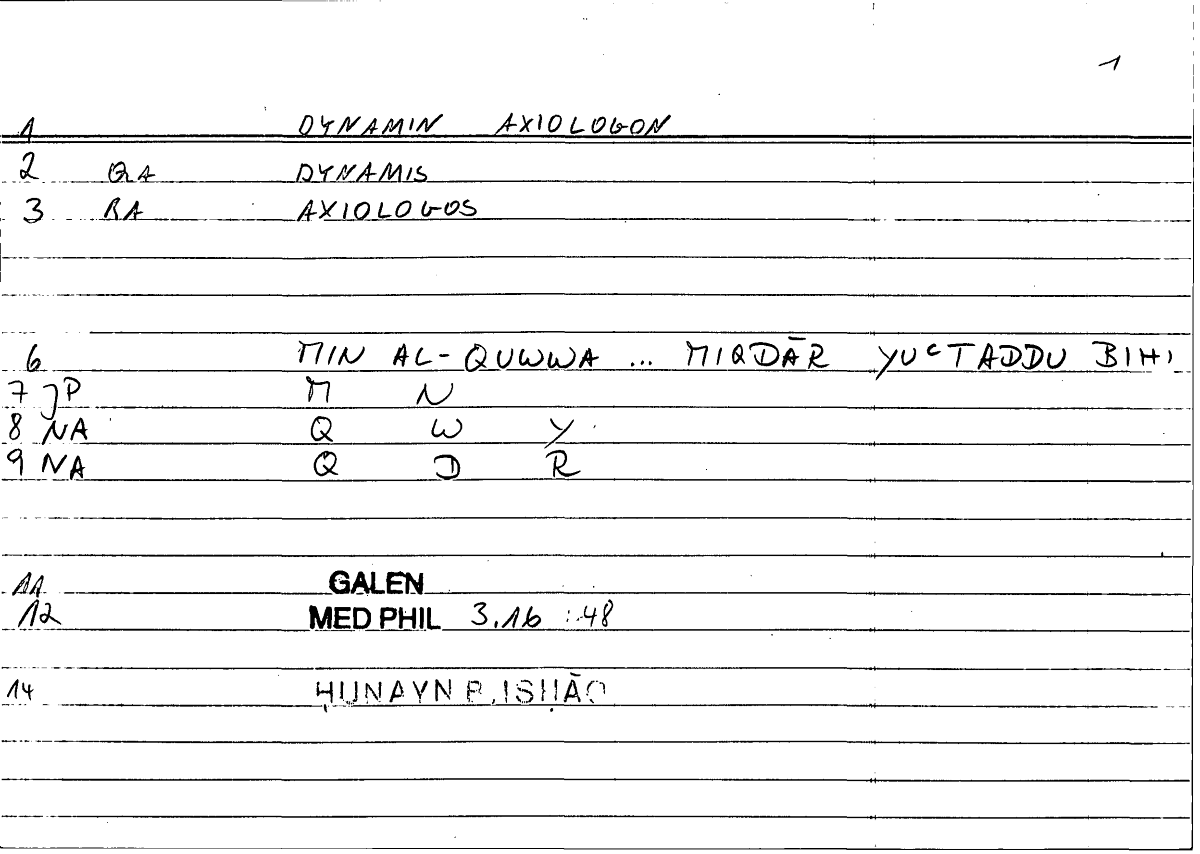 1
1 DYNAMIN AXIOLOGON
2 QA DYNAMIS
3 RA AXIOLOGOS
6 MIN AL-QUWWA ... MIQDĀR YUʿTADDU BIHI
7 JP M N
8 NA Q W Y
9 NA Q D R
11 GALEN
12 MED PHIL 3.16 :48
14 ḤUNAYN B. ISḤĀQ